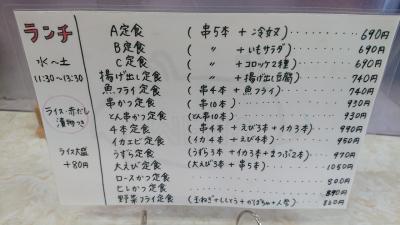 ランチ
水〜土
11:30〜13:30
ライス・赤だし
漬物つき
ライス大盛
+80円
A定食 (串5本 + 冷奴) 690円
B定食 ( 〃 + いもサラダ) 690円
C定食 ( 〃 + コロッケ2種) 690円
揚げ出し定食 ( 〃 + 揚げ出し豆腐) 740円
魚フライ定食 (串4本 + 魚フライ) 740円
串かつ定食 (串10本) 930円
とん串かつ定食 (とん串10本) 930円
4本定食 (串4本 + エビ3本 + イカ3本) 990円
イカエビ定食 (イカ4本 + エビ4本) 950円
うずら定食 (うずら3本 + イカ3本 + きつぷ2本) 970円
大えび定食 (大えび3本 + 串5本) 1050円
ロースかつ定食 800円
ヒレかつ定食 890円
野菜フライ定食 (玉ねぎ + ししとう + かぼちゃ + 人参) 860円